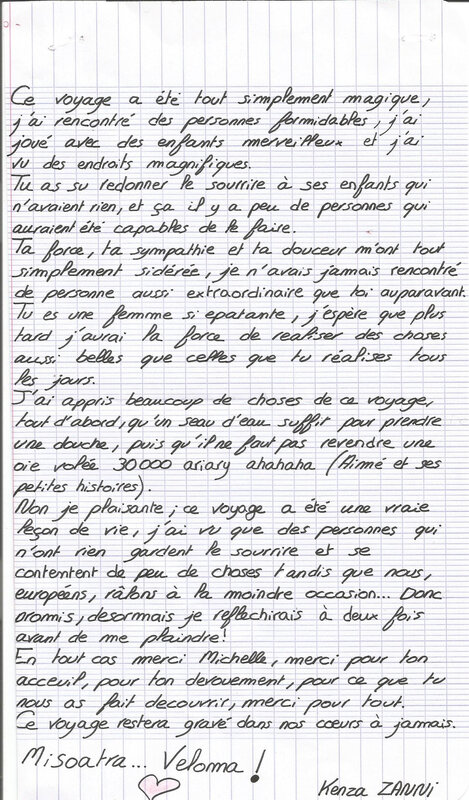 Ce voyage a été tout simplement magique,
j'ai rencontré des personnes formidables, j'ai
joué avec des enfants merveilleux et j'ai
vu des endroits magnifiques.
Tu as su redonner le sourrire à ses enfants qui
n'avaient rien, et ça il y a peu de personnes qui
auraient été capables de le faire.
Ta force, ta sympathie et ta douceur m'ont tout
simplement sidérée, je n'avais jamais rencontré
de personne aussi extraordinaire que toi auparavant.
Tu es une femme si epatante, j'éspère que plus
tard j'aurai la force de realiser des choses
aussi belles que celles que tu réalises tous
les jours.
J'ai appris beaucoup de choses de ce voyage,
tout d'abord, qu'un seau d'eau suffit pour prendre
une douche, puis qu'il ne faut pas revendre une
oie volée 30000 ariary ahahaha (Aimé et ses
petites histoires).
Non je plaisante ; ce voyage a été une vraie
leçon de vie, j'ai vu que des personnes qui
n'ont rien gardent le sourrire et se
contentent de peu de choses tandis que nous,
européens, râlons à la moindre occasion... Donc
promis, desormais je reflechirais à deux fois
avant de me plaindre!
En tout cas merci Michelle, merci pour ton
acceuil, pour ton devouement, pour ce que tu
nous as fait decouvrir, merci pour tout.
Ce voyage restera gravé dans nos cœurs à jamais.
Misoatra... Veloma !
Kenza ZANNI